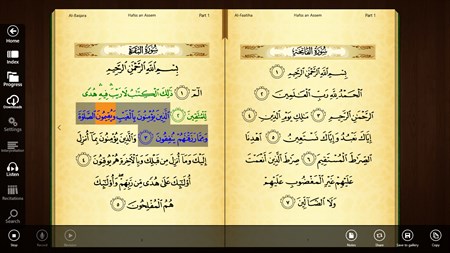 Home
Index
Progress
Downloads
Settings
Listen
Recitations
Search
Al-Faatiha
Hafsa an Assem
Part 1
سُورَةُ الفَاتِحَةِ
بِسْمِ اللَّهِ الرَّحْمَٰنِ الرَّحِيمِ ١
الْحَمْدُ لِلَّهِ رَبِّ الْعَالَمِينَ ٢
الرَّحْمَٰنِ الرَّحِيمِ ٣ مَالِكِ يَوْمِ الدِّينِ ٤
إِيَّاكَ نَعْبُدُ وَإِيَّاكَ نَسْتَعِينُ ٥ اهْدِنَا
الصِّرَاطَ الْمُسْتَقِيمَ ٦ صِرَاطَ الَّذِينَ أَنْعَمْتَ
عَلَيْهِمْ غَيْرِ الْمَغْضُوبِ عَلَيْهِمْ
وَلَا الضَّالِّينَ ٧
Al-Baqara
Hafsa an Assem
Part 1
سُورَةُ البَقَرَةِ
بِسْمِ اللَّهِ الرَّحْمَٰنِ الرَّحِيمِ
الٓمٓ ١ ذَٰلِكَ الْكِتَابُ لَا رَيْبَ فِيهِ هُدًى
لِّلْمُتَّقِينَ ٢ الَّذِينَ يُؤْمِنُونَ بِالْغَيْبِ وَيُقِيمُونَ الصَّلَاةَ
وَمِمَّا رَزَقْنَاهُمْ يُنفِقُونَ ٣ وَالَّذِينَ يُؤْمِنُونَ بِمَا أُنزِلَ
إِلَيْكَ وَمَا أُنزِلَ مِن قَبْلِكَ وَبِالْآخِرَةِ هُمْ يُوقِنُونَ ٤
أُولَٰئِكَ عَلَىٰ هُدًى مِّن رَّبِّهِمْ وَأُولَٰئِكَ
هُمُ الْمُفْلِحُونَ ٥
Stop
Record
Notes
Share
Save to gallery
Copy